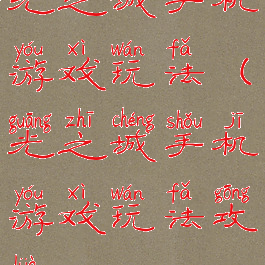 光之城手机
yóu xì wán fǎ
游戏玩法（
guāng zhī chéng shǒu jī
光之城手机
yóu xì wán fǎ gōng
游戏玩法攻
lüè